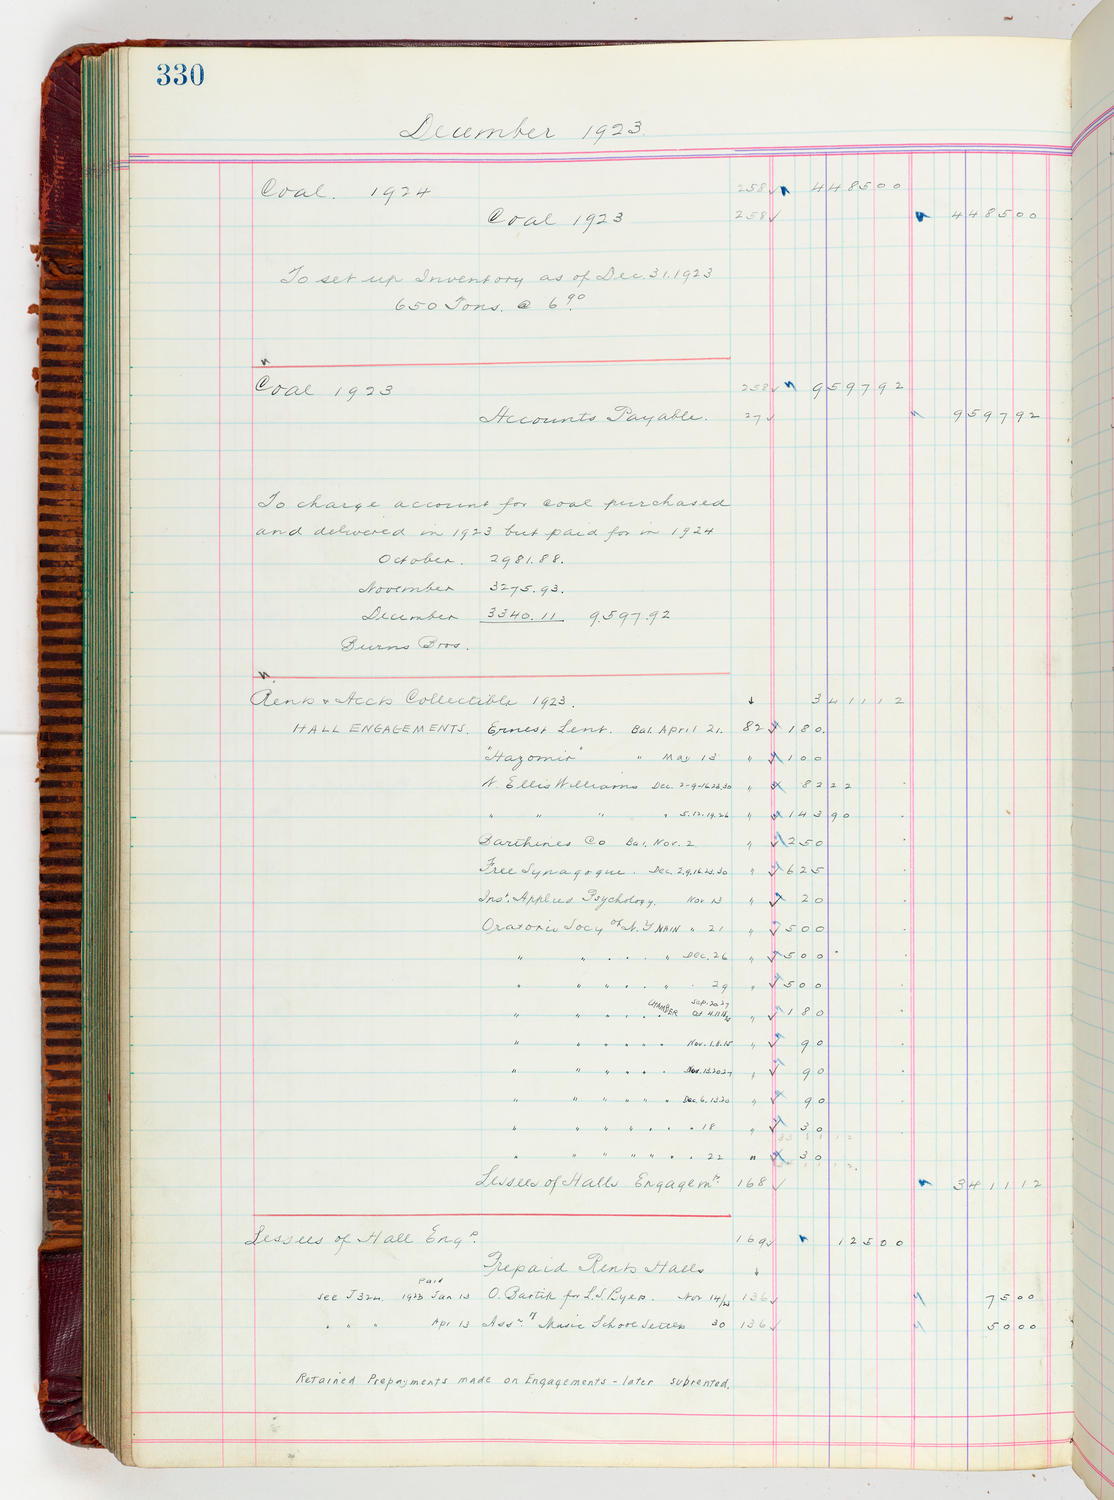 330
December 1923
Coal. 1924 258 ✓ 4485 00
Coal 1923 258 ✓ 4485 00
To set up Inventory as of Dec. 31. 1923
650 Tons. @ 6 90
Coal 1923 258 ✓ 9597 92
Accounts Payable. 27 ✓ 9597 92
To charge account for coal purchased
and delivered in 1923 but paid for in 1924
October. 2981.88.
November 3275.93.
December 3340.11 9,597.92
Burns Bros.
Rents & Accts Collectible 1923. 3411 12
HALL ENGAGEMENTS. Ernest Lent. Bal. April 21. 82 ✓ 180.
"Hazomir" " May 13 " ✓ 100
N. Ellis Williams Dec. 2-9-16.23.30 " 82 22
" " " " 5.12.19.26 " 143 90
Co Bal. Nov. 2 " ✓ 250
Free Synagogue. Dec. 2.9.16.23.30 " ✓ 625
Inst. Applied Psychology. Nov 13 " ✓ 20
Oratorio Socy of N.Y MAIN " 21 " ✓ 500
" " " " " " Dec. 26 " ✓ 500
" " " " " " 29 " ✓ 500
" " " " " CHAMBER Sep. 20 27 Oct 4.11.18 " ✓ 180
" " " " " " Nov. 1.8.15 " ✓ 90
" " " " " " Nov. 13.20 27 " ✓ 90
" " " " " " Dec. 6. 13 20 " ✓ 90
" " " " " " " 18 " ✓ 30
" " " " " " " 22 " 30
Lessees of Halls Engagemts. 168 ✓ 3411 12
Lessees of Hall Engs. 169 ✓ 125 00
Prepaid Rents Halls
Paid
see J324. 1923 Jan 13 O. Bartik for L.S. Nov 14/23 136 ✓ 75 00
" " " Apr 13 Assn. of Music School Settlen 30 136 ✓ 50 00
Retained Prepayments made on Engagements - later subrented.